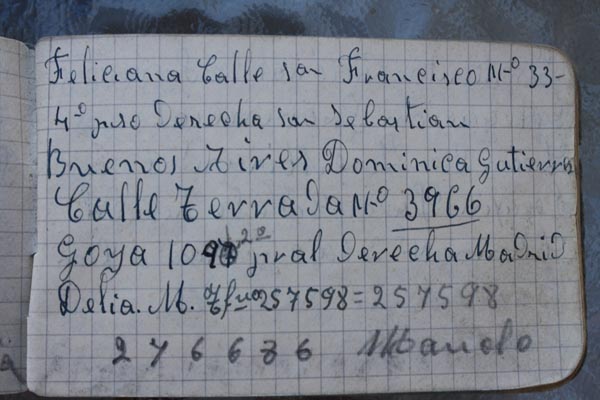 Feliciana Calle san Francisco Nº 33-
4º piso Derecha san Sebastian
Buenos Aires Dominica Gutierrez
Calle Terrada Nº 3966
Goya 109 2º pral Derecha Madrid
Delia. M. Tfno 257598 = 257598
276686 Manolo